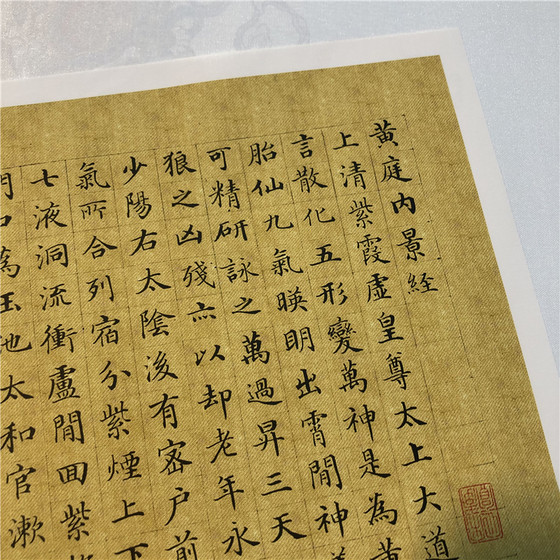 黄庭内景経
上清紫霞虚皇尊太上大道
言散化五形變萬神是為黄
胎仙九氣暎明出霄間神
可精研詠之萬過昇三天
狼之凶殘亦以却老年永
少陽右太陰後有密户前
氣所合列宿分紫煙上下
七液洞流衝廬間回紫
門口為玉池太和官漱